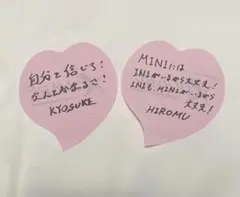 自分を信じろ!
なんとかなるさ!
KYOSUKE
MINIには
INIがいるから大丈夫!
INIも、MINIがいるから
大丈夫!
HIROMU